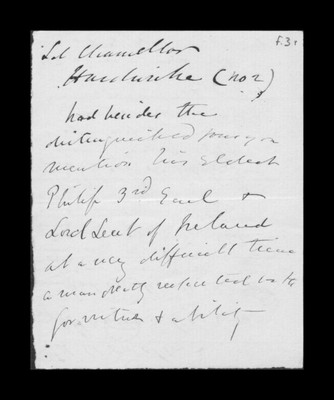 f.31
Ld Chancellor
Hardwicke (no 2)
had besides the
distinguished sons you
mention his Eldest
Philip 3rd Earl &
Lord Lieut of Ireland
at a very difficult time
a man greatly respected both
for virtues & ability